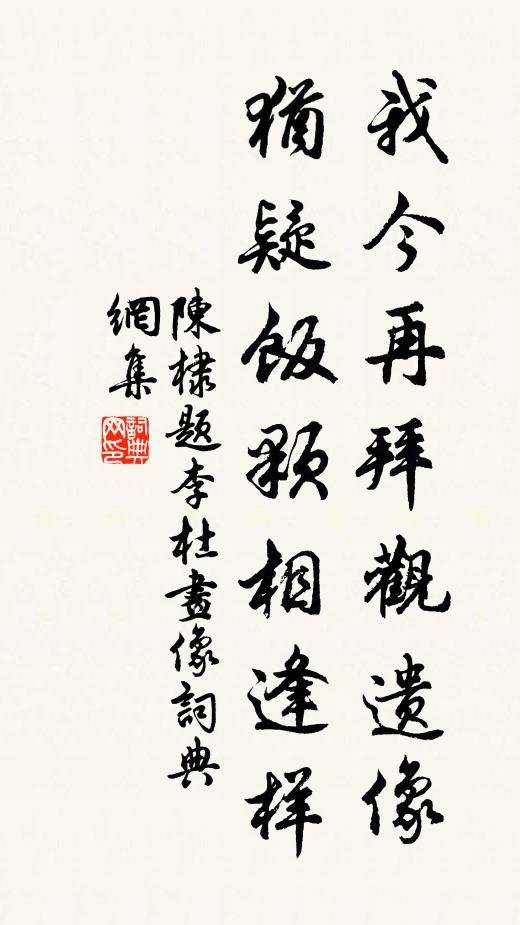 我今再拜觀遺像
猶疑飯顆相逢样
陳棣題李杜畫像詞典
網集
詞典
网印